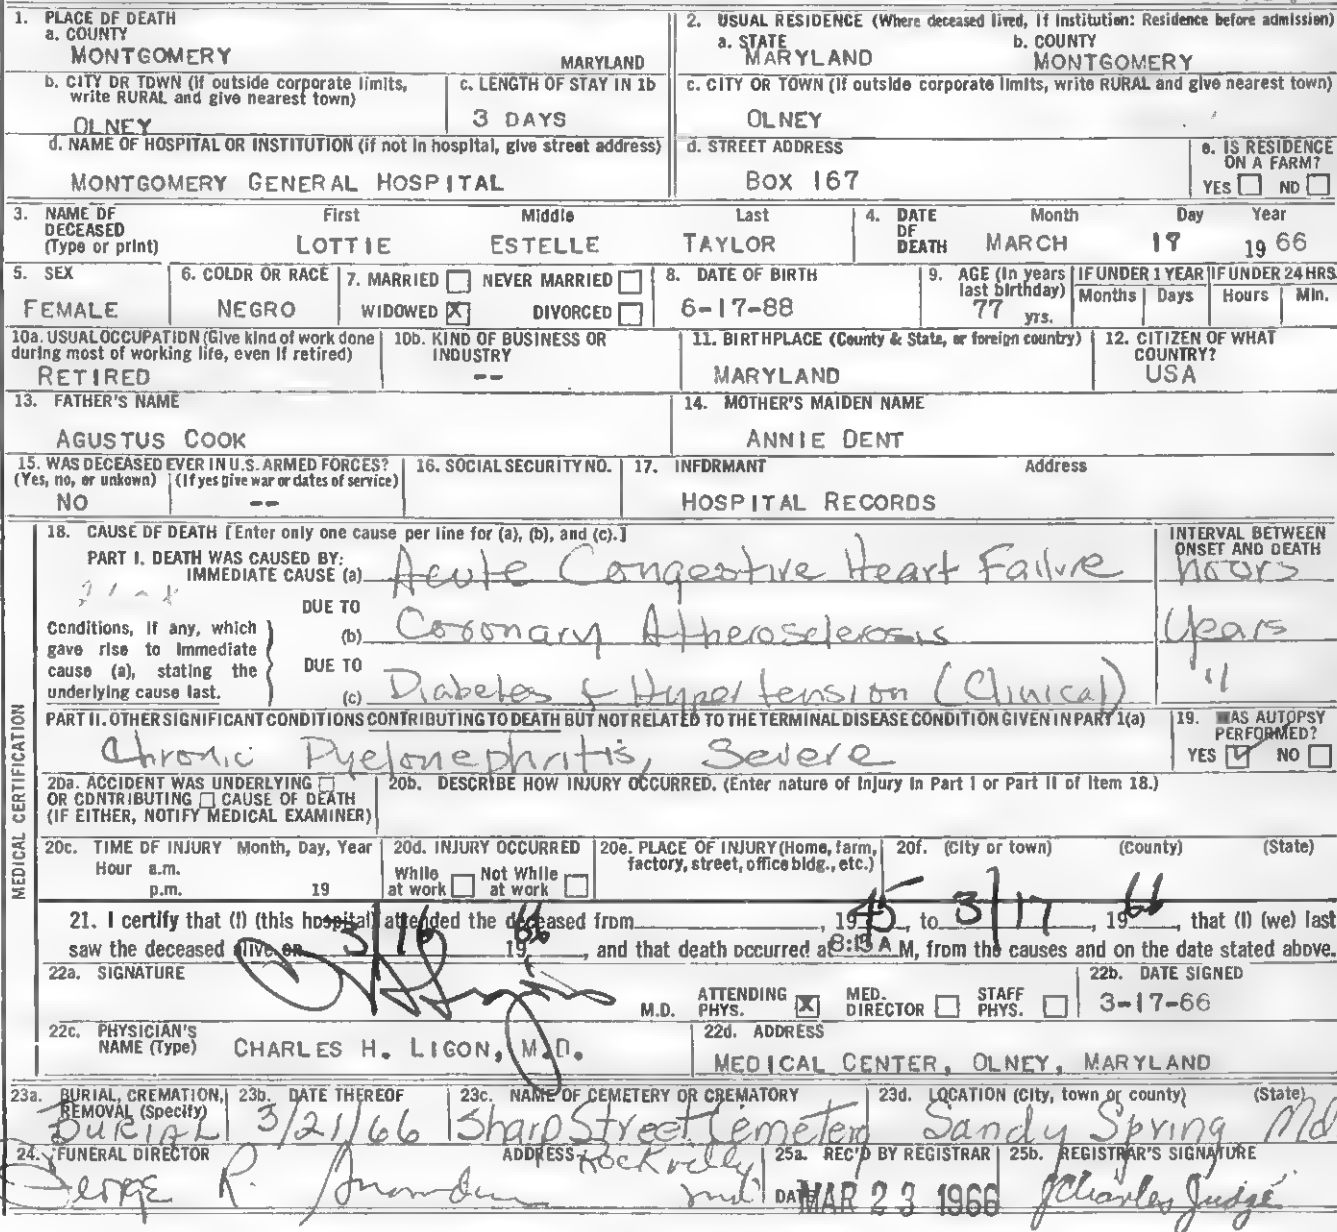 1. PLACE OF DEATH
a. COUNTY
MONTGOMERY MARYLAND
2. USUAL RESIDENCE (Where deceased lived, If institution: Residence before admission)
a. STATE b. COUNTY
MARYLAND MONTGOMERY
b. CITY OR TOWN (If outside corporate limits, write RURAL and give nearest town)
OLNEY
c. LENGTH OF STAY IN 1b
3 DAYS
c. CITY OR TOWN (If outside corporate limits, write RURAL and give nearest town)
OLNEY
d. NAME OF HOSPITAL OR INSTITUTION (if not in hospital, give street address)
MONTGOMERY GENERAL HOSPITAL
d. STREET ADDRESS
BOX 167
e. IS RESIDENCE ON A FARM?
YES NO
3. NAME OF DECEASED (Type or print)
First Middle Last
LOTTIE ESTELLE TAYLOR
4. DATE OF DEATH
Month Day Year
MARCH 17 19 66
5. SEX
FEMALE
6. COLOR OR RACE
NEGRO
7. MARRIED NEVER MARRIED
WIDOWED X DIVORCED
8. DATE OF BIRTH
6-17-88
9. AGE (In years last birthday)
77 yrs.
IF UNDER 1 YEAR
Months Days
IF UNDER 24 HRS.
Hours Min.
10a. USUAL OCCUPATION (Give kind of work done during most of working life, even if retired)
RETIRED
10b. KIND OF BUSINESS OR INDUSTRY
--
11. BIRTHPLACE (County & State, or foreign country)
MARYLAND
12. CITIZEN OF WHAT COUNTRY?
USA
13. FATHER'S NAME
AGUSTUS COOK
14. MOTHER'S MAIDEN NAME
ANNIE DENT
15. WAS DECEASED EVER IN U.S. ARMED FORCES?
(Yes, no, or unkown) (If yes give war or dates of service)
NO --
16. SOCIAL SECURITY NO.
17. INFORMANT Address
HOSPITAL RECORDS
MEDICAL CERTIFICATION
18. CAUSE OF DEATH [Enter only one cause per line for (a), (b), and (c).]
PART I. DEATH WAS CAUSED BY:
IMMEDIATE CAUSE (a) Acute Congestive Heart Failure
INTERVAL BETWEEN ONSET AND DEATH
hours
Conditions, if any, which gave rise to immediate cause (a), stating the underlying cause last.
DUE TO
(b) Coronary Atherosclerosis Years
DUE TO
(c) Diabetes & Hypertension (Clinical) "
PART II. OTHER SIGNIFICANT CONDITIONS CONTRIBUTING TO DEATH BUT NOT RELATED TO THE TERMINAL DISEASE CONDITION GIVEN IN PART I(a)
Chronic Pyelonephritis, Severe
19. WAS AUTOPSY PERFORMED?
YES NO
20a. ACCIDENT WAS UNDERLYING
OR CONTRIBUTING CAUSE OF DEATH
(IF EITHER, NOTIFY MEDICAL EXAMINER)
20b. DESCRIBE HOW INJURY OCCURRED. (Enter nature of injury in Part I or Part II of item 18.)
20c. TIME OF INJURY Month, Day, Year
Hour a.m.
p.m. 19
20d. INJURY OCCURRED
While at work Not While at work
20e. PLACE OF INJURY (Home, farm, factory, street, office bldg., etc.)
20f. (City or town) (County) (State)
21. I certify that (I) (this hospital) attended the deceased from , 1945, to 3/17 1966, that (I) (we) last
saw the deceased alive on 3/16 1966, and that death occurred at 8:15 A M, from the causes and on the date stated above.
22a. SIGNATURE
M.D. ATTENDING PHYS. X MED. DIRECTOR STAFF PHYS.
22b. DATE SIGNED
3-17-66
22c. PHYSICIAN'S NAME (Type)
CHARLES H. LIGON, M.D.
22d. ADDRESS
MEDICAL CENTER, OLNEY, MARYLAND
23a. BURIAL, CREMATION, REMOVAL (Specify)
BURIAL
23b. DATE THEREOF
3/21/66
23c. NAME OF CEMETERY OR CREMATORY
Sharp Street Cemetery
23d. LOCATION (City, town or county) (State)
Sandy Spring Md
24. FUNERAL DIRECTOR ADDRESS
George R. Snowden Md
25a. REC'D BY REGISTRAR
DATE MAR 23 1966
25b. REGISTRAR'S SIGNATURE
J Charles Judge